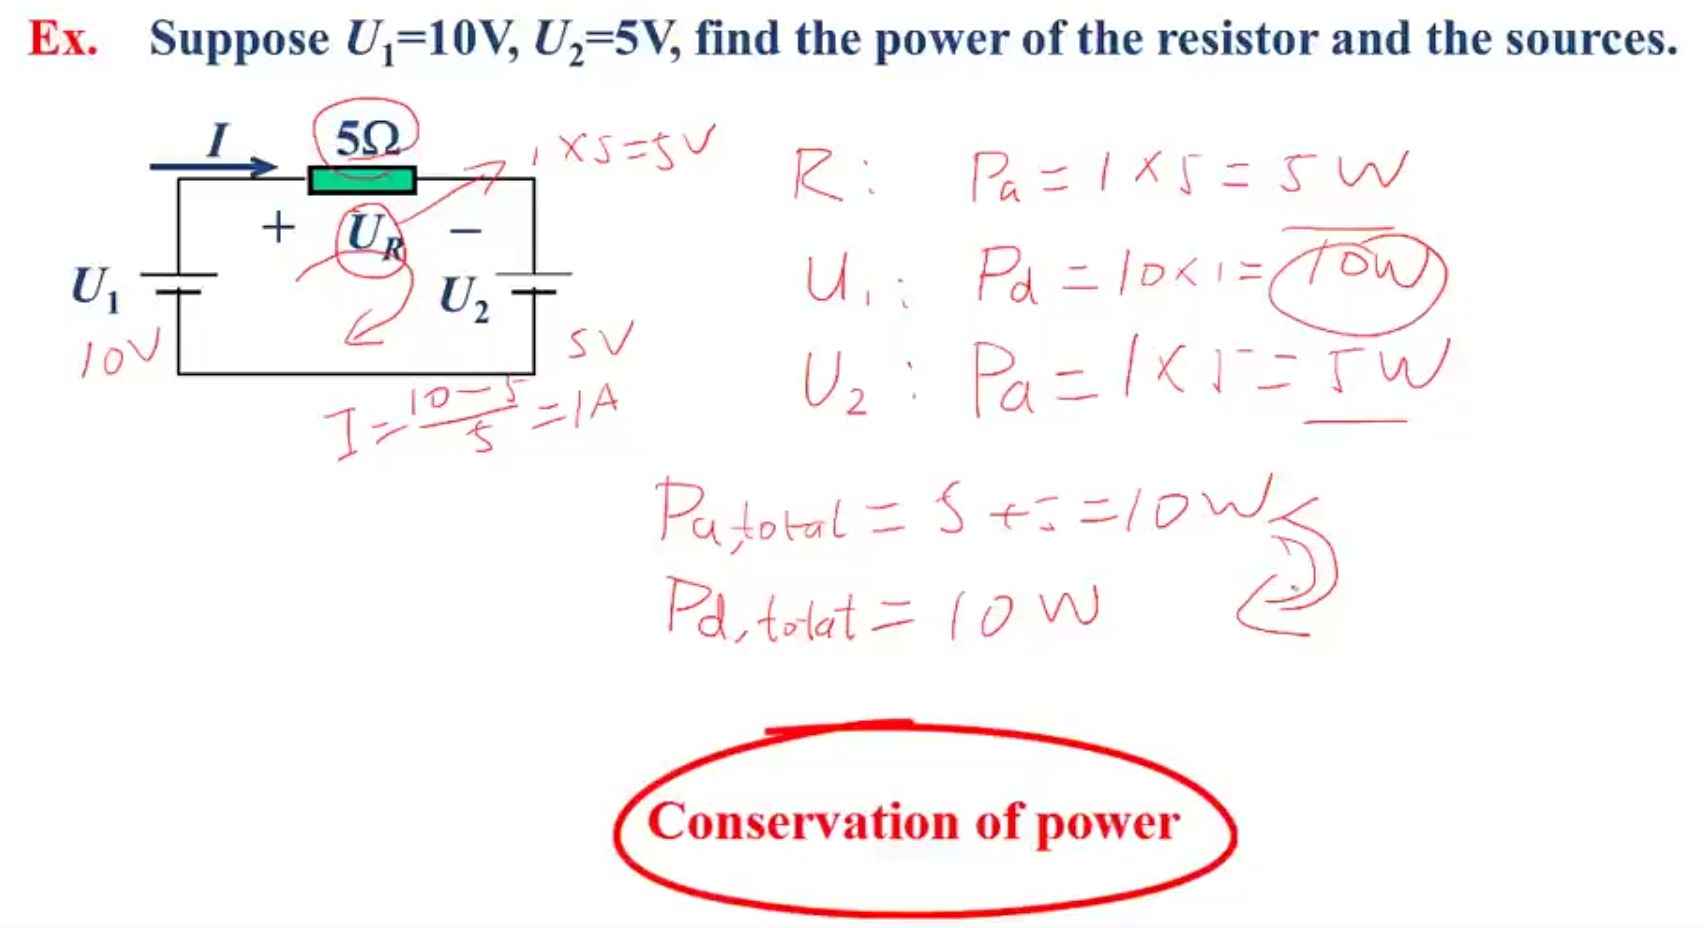 Ex. Suppose U₁=10V, U₂=5V, find the power of the resistor and the sources.
I
5Ω
1×5=5V
+ U_R −
U₁
U₂
10V
5V
I=(10−5)/5=1A
R: Pa=1×5=5W
U₁: Pd=10×1=10W
U₂: Pa=1×5=5W
Pa,total=5+5=10W
Pd,totat=10W
Conservation of power